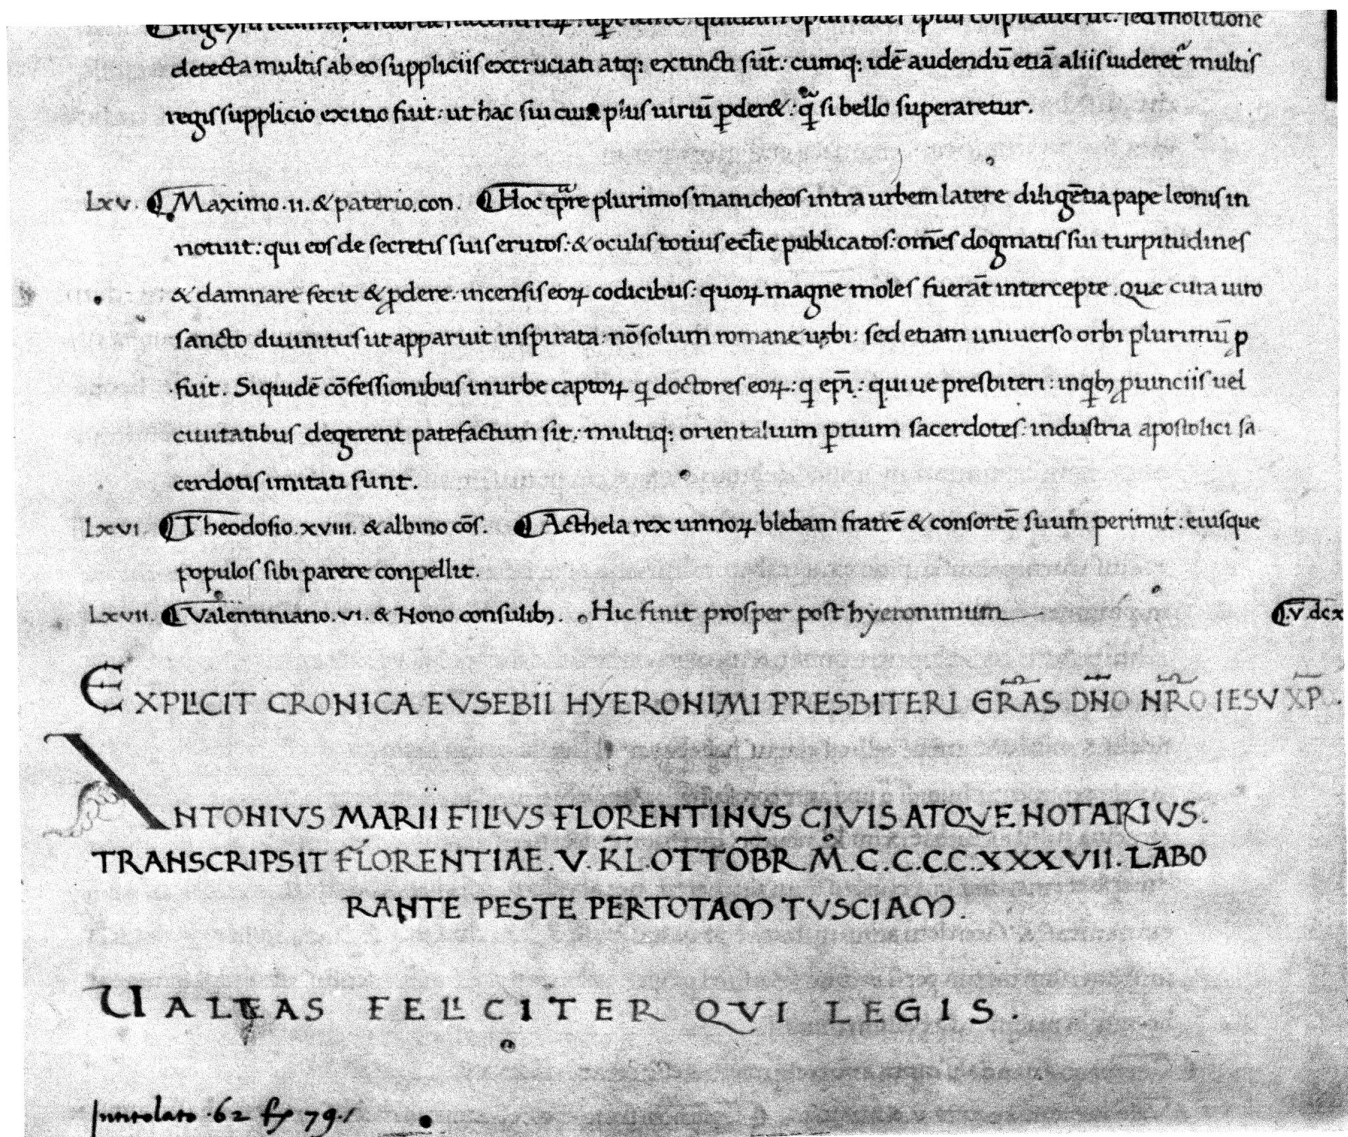 sed molitione
detecta multis ab eo suppliciis excruciati atq; extincti sūt: cumq; idē audendū etiā aliis uideretᷣ multis
regis supplicio exitio fuit: ut hac sui plus uiriū ꝑder&: q̄ si bello superaretur.
Lxv. Maximo .ii. & paterio. con. Hoc tp̄re plurimos manicheos intra urbem latere diligētia pape leonis in
notuit: qui eos de secretis suis erutos: & oculis totius ecl̄ie publicatos: om̄es dogmatis sui turpitudines
& damnare fecit & ꝓdere. incensis eoꝝ codicibus: quoꝝ magne moles fuerāt intercepte. Que cura uiro
sancto diuinitus ut apparuit inspirata: nō solum romane urbi: sed etiam uniuerso orbi plurimū ꝓ
fuit. Siquidē cōfessionibus in urbe captoꝝ q doctores eoꝝ: q ep̄i: qui ue presbiteri: in qb; ꝓuinciis uel
ciuitatibus degerent patefactum sit: multiq; orientalium ꝑtium sacerdotes: industria apostolici sa
cerdotis imitati sunt.
Lxvi. Theodosio .xviii. & albino cōs. Acthela rex unnoꝝ blebam fratrē & consortē suum perimit: eiusque
populos sibi parere conpellit.
Lxvii. Valentiniano .vi. & Nono consulib; . Hic finit prosper post hyeronimum .v.dcx
EXPLICIT CRONICA EVSEBII HYERONIMI PRESBITERI GR̄AS DN̄O NR̄O IESV XP̄O.
ANTONIVS MARII FILIVS FLORENTINVS CIVIS ATQVE NOTARIVS.
TRANSCRIPSIT FLORENTIAE. V. KL̄. OTTOB̄R M̊. C.C.C.C.XXXVII. LABO
RANTE PESTE PER TOTAM TVSCIAM.
UALEAS FELICITER QVI LEGIS.
Intitolato · 62 79 ·/